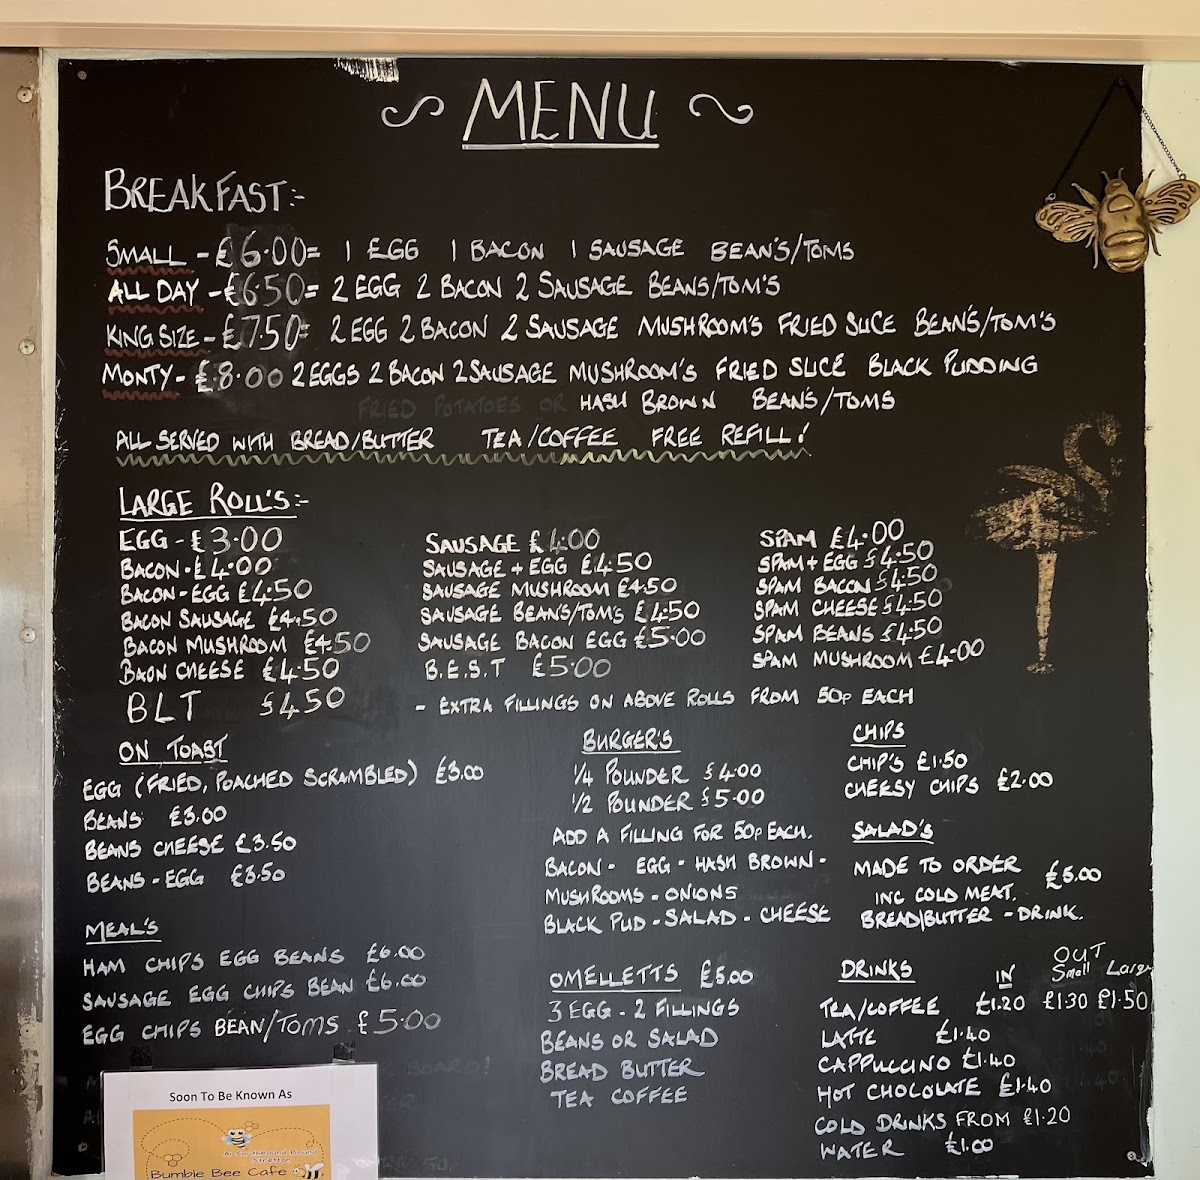 MENU
BREAKFAST:-
SMALL - £6.00= 1 EGG 1 BACON 1 SAUSAGE BEAN'S/TOMS
ALL DAY - £6.50= 2 EGG 2 BACON 2 SAUSAGE BEANS/TOM'S
KING SIZE - £7.50= 2 EGG 2 BACON 2 SAUSAGE MUSHROOM'S FRIED SLICE BEAN'S/TOM'S
MONTY - £8.00 2 EGGS 2 BACON 2 SAUSAGE MUSHROOM'S FRIED SLICE BLACK PUDDING
FRIED POTATOES OR HASH BROWN BEAN'S/TOMS
ALL SERVED WITH BREAD/BUTTER TEA/COFFEE FREE REFILL!
LARGE ROLL'S:-
EGG - £3.00
BACON - £4.00
BACON - EGG £4.50
BACON SAUSAGE £4.50
BACON MUSHROOM £4.50
BAON CHEESE £4.50
BLT £4.50
SAUSAGE £4.00
SAUSAGE + EGG £4.50
SAUSAGE MUSHROOM £4.50
SAUSAGE BEANS/TOM'S £4.50
SAUSAGE BACON EGG £5.00
B.E.S.T £5.00
SPAM £4.00
SPAM + EGG £4.50
SPAM BACON £4.50
SPAM CHEESE £4.50
SPAM BEANS £4.50
SPAM MUSHROOM £4.00
- EXTRA FILLINGS ON ABOVE ROLLS FROM 50p EACH
ON TOAST
EGG (FRIED, POACHED SCRAMBLED) £3.00
BEANS £3.00
BEANS CHEESE £3.50
BEANS - EGG £3.50
MEAL'S
HAM CHIPS EGG BEANS £6.00
SAUSAGE EGG CHIPS BEAN £6.00
EGG CHIPS BEAN/TOMS £5.00
BURGER'S
1/4 POUNDER £4.00
1/2 POUNDER £5.00
ADD A FILLING FOR 50p EACH.
BACON - EGG - HASH BROWN -
MUSHROOMS - ONIONS
BLACK PUD - SALAD - CHEESE
OMELLETTS £5.00
3 EGG - 2 FILLINGS
BEANS OR SALAD
BREAD BUTTER
TEA COFFEE
CHIPS
CHIP'S £1.50
CHEESY CHIPS £2.00
SALAD'S
MADE TO ORDER £5.00
INC COLD MEAT.
BREAD/BUTTER - DRINK.
DRINKS IN OUT
Small Large
TEA/COFFEE £1.20 £1.30 £1.50
LATTE £1.40
CAPPUCCINO £1.40
HOT CHOCOLATE £1.40
COLD DRINKS FROM £1.20
WATER £1.00
Soon To Be Known As
Bumble Bee Cafe